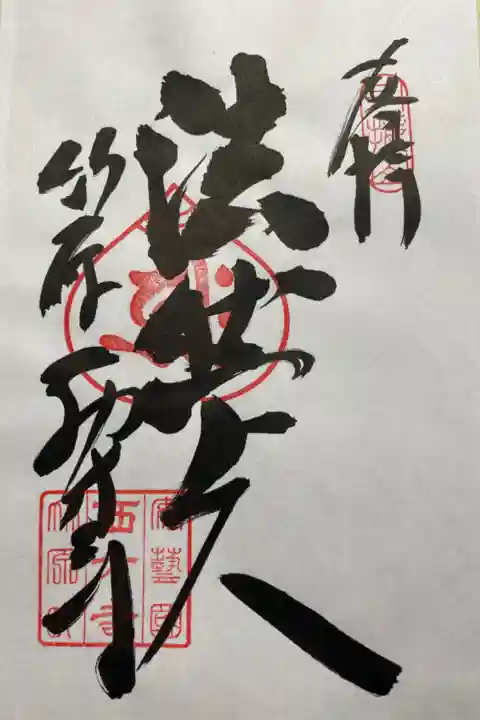 奉拝
法然上人
竹原 西方寺
安藝国
西方寺
竹原